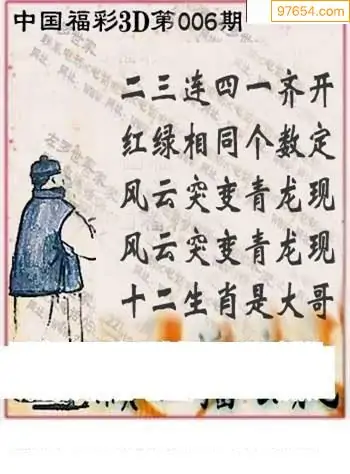 中国福彩3D第006期
97654.com
二三连四一齐开
红绿相同个数定
风云突变青龙现
风云突变青龙现
十二生肖是大哥